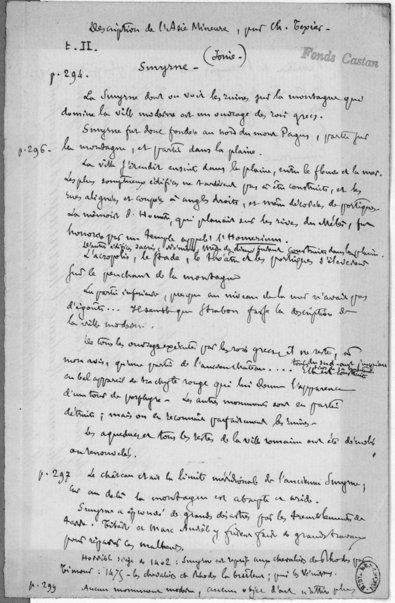 Description de l'Asie Mineure, par Ch. Texier -
t. II.
(Ionie) -
Fonds Castan
Smyrne -
p. 294.
La Smyrne dont on voit les ruines sur la montagne qui
domine la ville moderne est un ouvrage des rois grecs.
Smyrne fut donc fondée au nord du mont Pagus, partie sur
p. 296
la montagne, et partie dans la plaine.
La ville s'étendit ensuite dans la plaine, entre le fleuve et la mer.
Les plus somptueux édifices ne tardèrent pas à être construits, et les
rues alignées et coupées à angles droits, et même décorées de portiques.
La mémoire d'Homère, qui planait sur les rives du Mélès, fut
honorée par un temple appelé l'Homerium.
construites dans la plaine.
L'acropole, le stade, le théâtre et les portiques s'élevèrent
sur le penchant de la montagne
La partie inférieure, presque au niveau de la mer n'avait pas
d'égouts... Il semble que Strabon fasse la description de
la ville moderne.
De tous les ouvrages exécutés par les rois grecs il ne reste, à
mon avis, qu'une partie de l'ancien château....
un bel appareil de trachyte rouge qui lui donne l'apparence
d'un tour de porphyre - Les autres monuments sont en partie
détruits; mais on en reconnaît parfaitement les ruines -
Les aqueducs et tous les restes de la ville romaine ont été démolis
ou renouvelés.
p. 297
Le château était la limite méridionale de l'ancienne Smyrne;
car au delà la montagne est abrupte et aride.
Smyrne a éprouvé de grands désastres par les tremblements de
terre. Tibère et Marc Aurèle y firent faire de grands travaux
pour réparer les malheurs.
siège de 1402: Smyrne est reprise aux chevaliers de Rhodes par
Timour: 1475 - les chevaliers de Rhodes la brûlent; puis les Vénitiens.
p. 299
Aucun monument moderne, aucun objet d'art n'attire plus